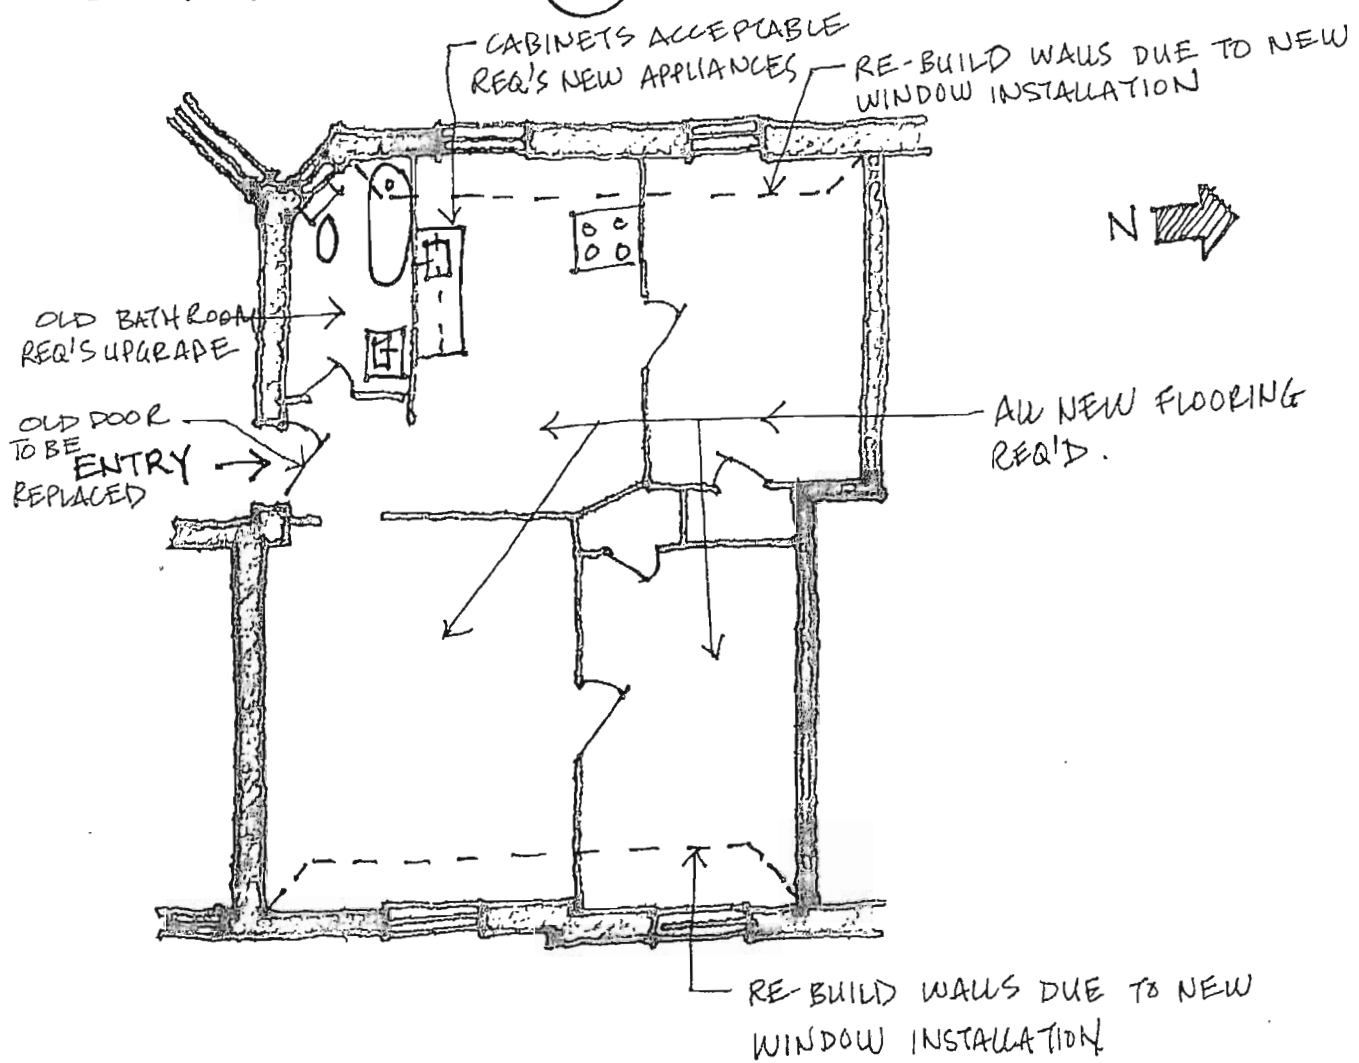 CABINETS ACCEPTABLE
REQ'S NEW APPLIANCES
RE-BUILD WALLS DUE TO NEW
WINDOW INSTALLATION
N
OLD BATHROOM
REQ'S UPGRADE
OLD DOOR
TO BE
ENTRY
REPLACED
ALL NEW FLOORING
REQ'D.
RE-BUILD WALLS DUE TO NEW
WINDOW INSTALLATION